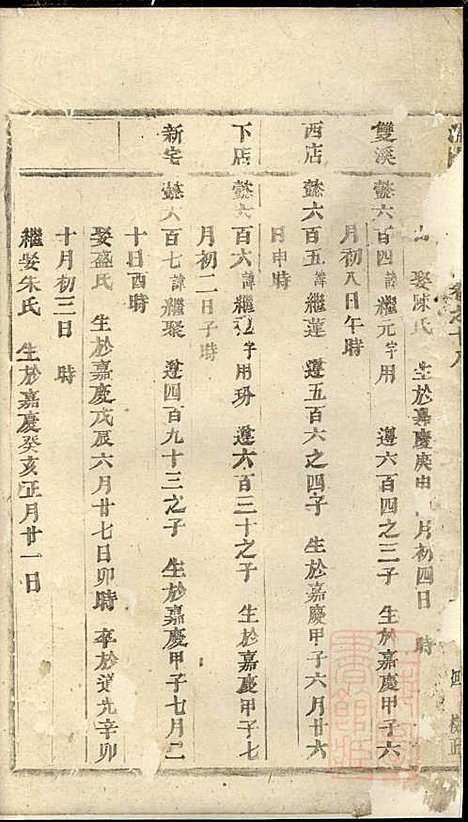 娶陳氏 生於嘉慶庚申 月初四日 時
雙溪 懿六百四 諱 繼元 字 用 遵六百四之三子 生於嘉慶甲子六
月初八日午時
西店 懿六百五 諱 繼蓮 遵五百六之四子 生於嘉慶甲子六月廿六
日申時
下店 懿六百六 諱 繼 字 用玬 遵六百三十之子 生於嘉慶甲子七
月初二日子時
新宅 懿六百七 諱 繼聚 遵四百九十三之子 生於嘉慶甲子七月二
十日酉時
娶盛氏 生於嘉慶戊辰六月廿七日卯時 卒於道光辛卯
十月初三日 時
繼娶朱氏 生於嘉慶癸亥正月廿一日